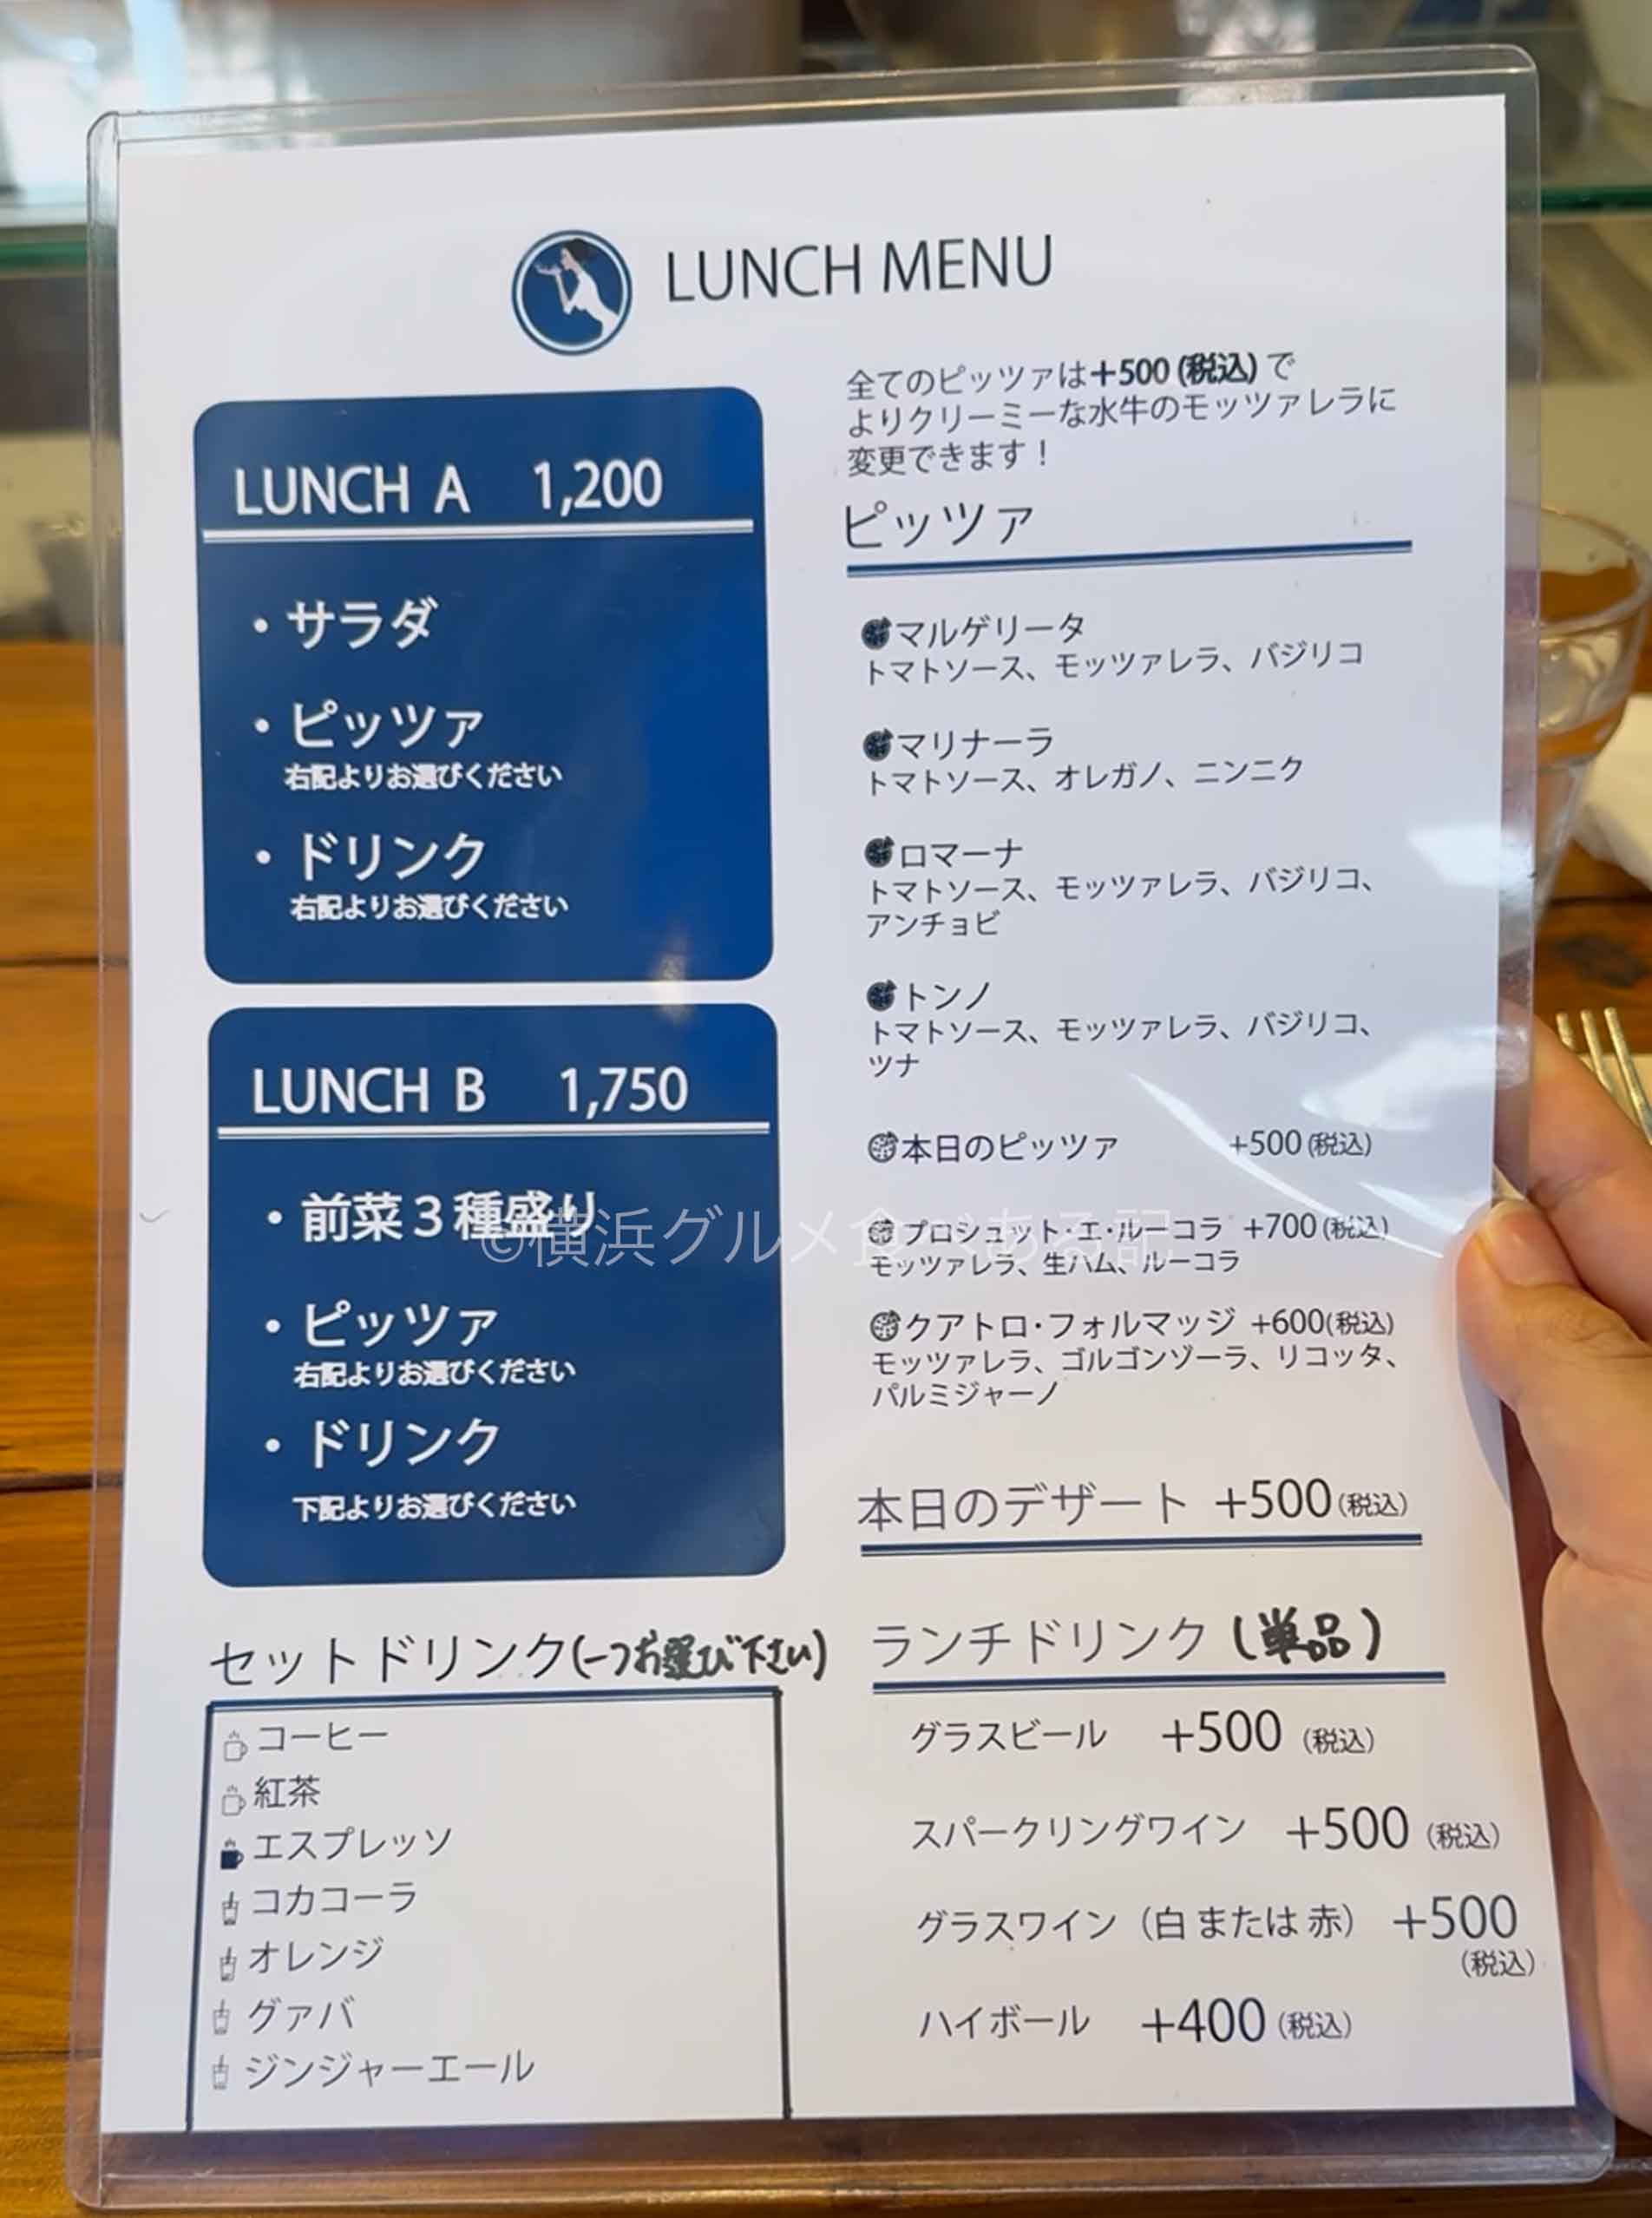 LUNCH MENU
LUNCH A 1,200
・サラダ
・ピッツァ
右記よりお選びください
・ドリンク
右記よりお選びください
LUNCH B 1,750
・前菜3種盛り
・ピッツァ
右記よりお選びください
・ドリンク
下記よりお選びください
セットドリンク(一つお選び下さい)
コーヒー
紅茶
エスプレッソ
コカコーラ
オレンジ
グァバ
ジンジャーエール
全てのピッツァは+500(税込)で
よりクリーミーな水牛のモッツァレラに
変更できます！
ピッツァ
マルゲリータ
トマトソース、モッツァレラ、バジリコ
マリナーラ
トマトソース、オレガノ、ニンニク
ロマーナ
トマトソース、モッツァレラ、バジリコ、
アンチョビ
トンノ
トマトソース、モッツァレラ、バジリコ、
ツナ
本日のピッツァ +500(税込)
プロシュット・エ・ルーコラ +700(税込)
モッツァレラ、生ハム、ルーコラ
クアトロ・フォルマッジ +600(税込)
モッツァレラ、ゴルゴンゾーラ、リコッタ、
パルミジャーノ
本日のデザート +500(税込)
ランチドリンク(単品)
グラスビール +500(税込)
スパークリングワイン +500(税込)
グラスワイン（白 または 赤） +500
(税込)
ハイボール +400(税込)
©横浜グルメ食べある記